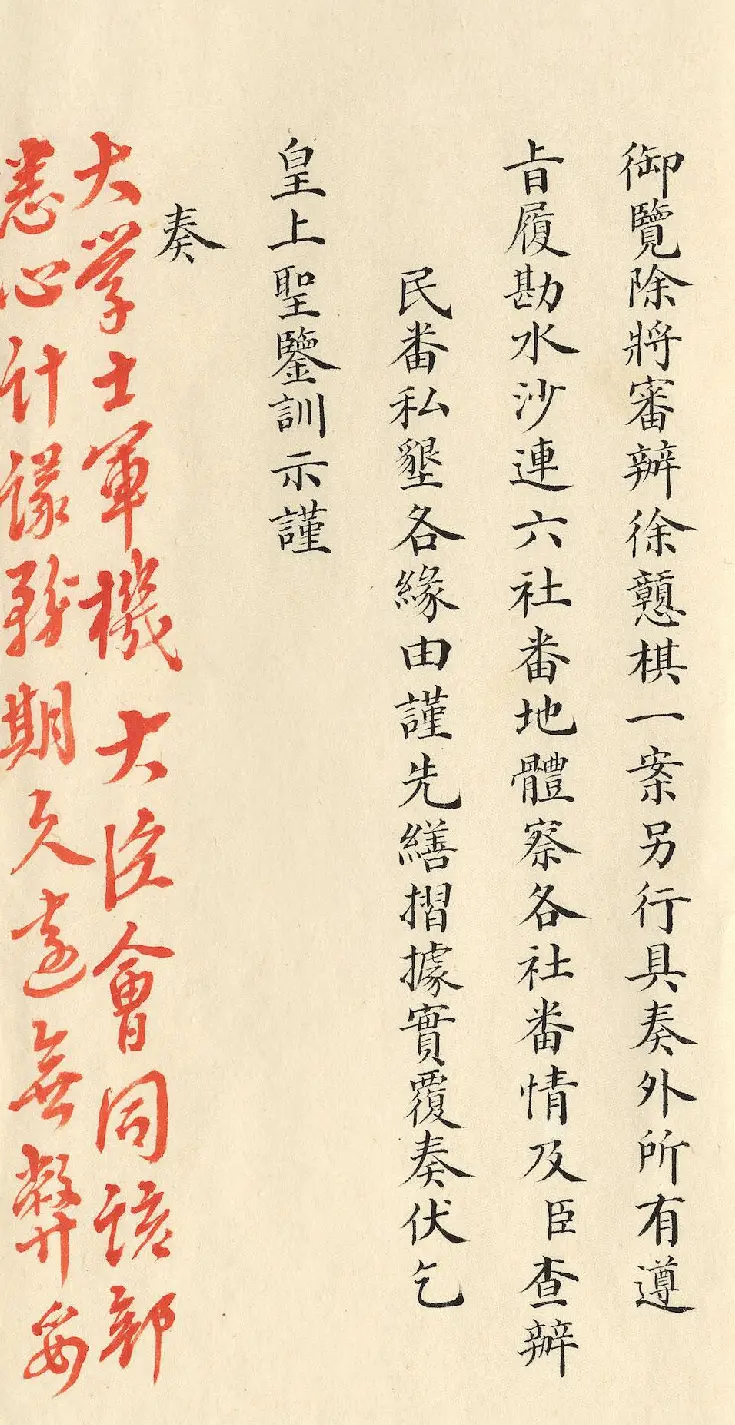 御覽除將審辦徐戇棋一案另行具奏外所有遵
旨履勘水沙連六社番地體察各社番情及臣查辦
民番私墾各緣由謹先繕摺據實覆奏伏乞
皇上聖鑒訓示謹
奏
大学士軍機大臣會同該部
悉心计議務期久遠無弊妥